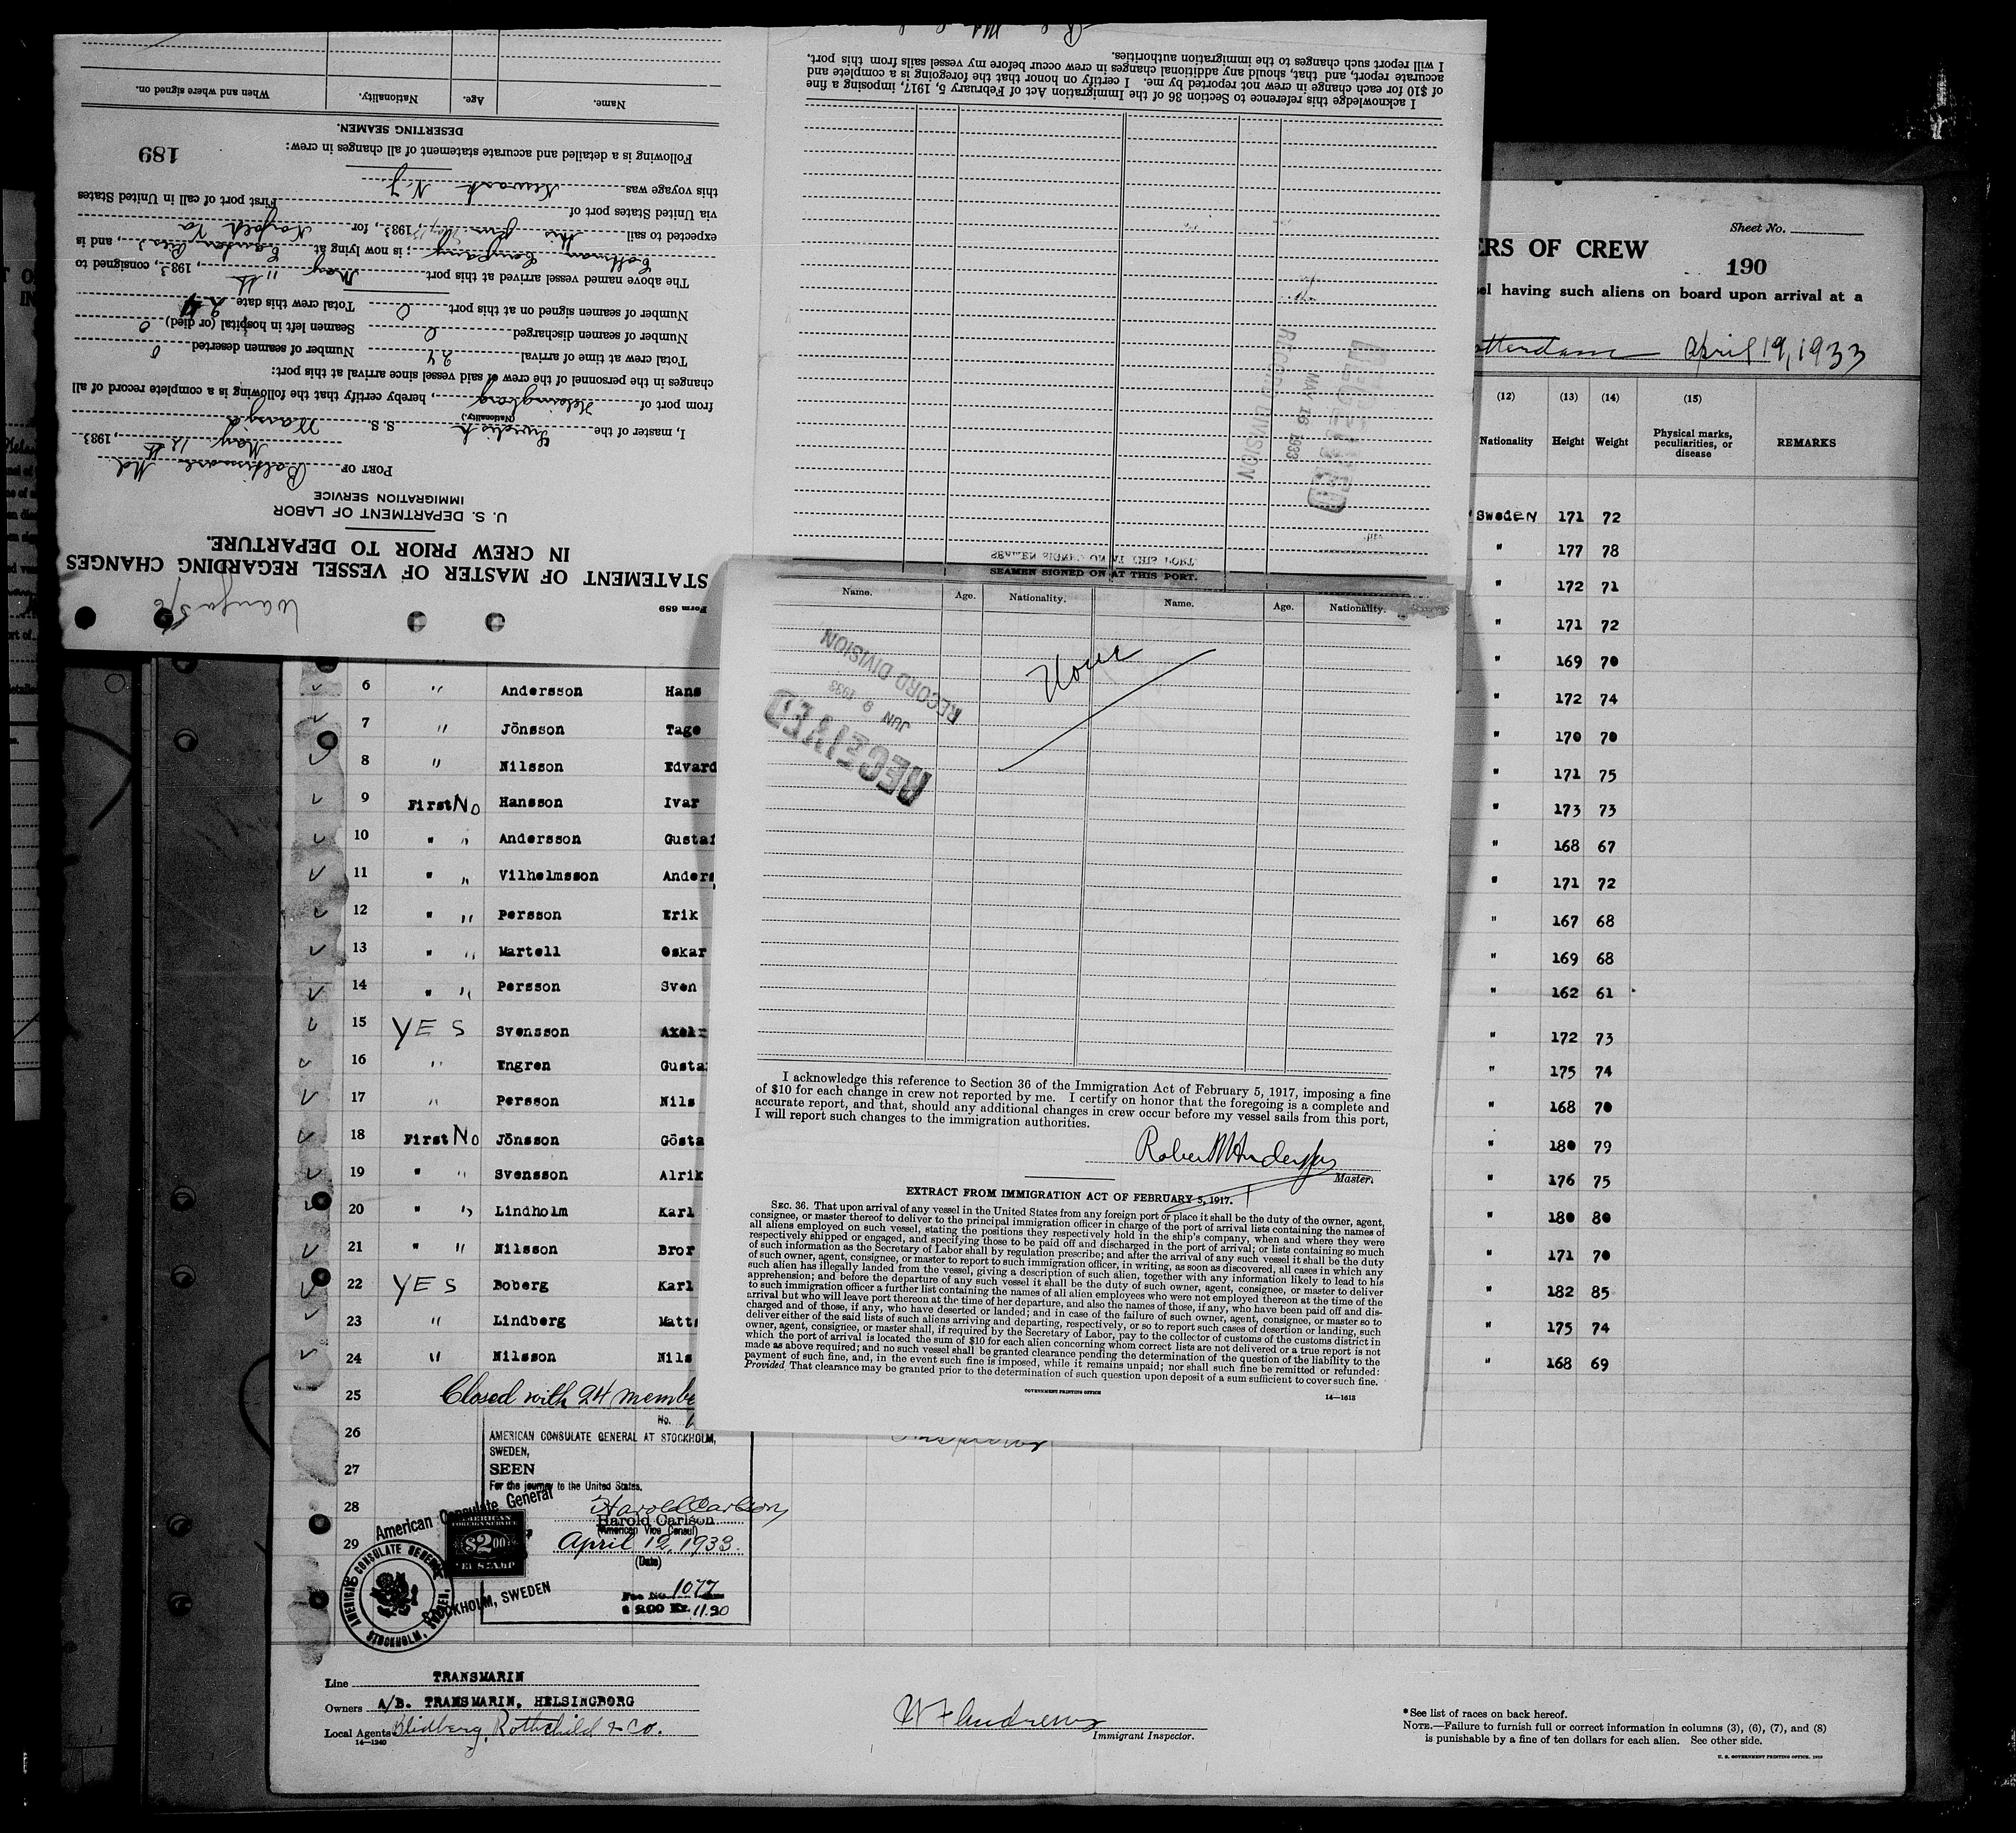 Form 689
STATEMENT OF MASTER OF VESSEL REGARDING CHANGES
IN CREW PRIOR TO DEPARTURE.
U. S. DEPARTMENT OF LABOR
IMMIGRATION SERVICE
PORT OF Baltimore Md
May 12th, 1933
I, master of the Swedish S. S.
(Nationality.)
from port of Helsingborg, hereby certify that the following is a complete record of all
changes in the personnel of the crew of said vessel since arrival at this port:
Total crew at time of arrival 24 Number of seamen deserted 0
Number of seamen discharged 0 Seamen left in hospital (or died) 0
Number of seamen signed on at this port 0 Total crew this date 24
The above named vessel arrived at this port May 11th, 1933, consigned to
Cottman Company; is now lying at, and is
expected to sail this, 1933, for Norfolk Va
via United States port of First port of call in United States
this voyage was Newark N.J.
Following is a detailed and accurate statement of all changes in crew:
189
DESERTING SEAMEN.
Name. Age. Nationality. When and where signed on.
SEAMEN SIGNED ON AT THIS PORT
MAY 16 1933
RECORD DIVISION
I acknowledge this reference to Section 36 of the Immigration Act of February 5, 1917, imposing a fine
of $10 for each change in crew not reported by me. I certify on honor that the foregoing is a complete and
accurate report, and that, should any additional changes in crew occur before my vessel sails from this port,
I will report such changes to the immigration authorities.
SEAMEN SIGNED ON AT THIS PORT.
Name. Age. Nationality. Name. Age. Nationality.
None
RECEIVED
JUN 9 1933
RECORD DIVISION
I acknowledge this reference to Section 36 of the Immigration Act of February 5, 1917, imposing a fine
of $10 for each change in crew not reported by me. I certify on honor that the foregoing is a complete and
accurate report, and that, should any additional changes in crew occur before my vessel sails from this port,
I will report such changes to the immigration authorities.
Master.
EXTRACT FROM IMMIGRATION ACT OF FEBRUARY 5, 1917.
SEC. 36. That upon arrival of any vessel in the United States from any foreign port or place it shall be the duty of the owner, agent,
consignee, or master thereof to deliver to the principal immigration officer in charge of the port of arrival lists containing the names of
all aliens employed on such vessel, stating the positions they respectively hold in the ship's company, when and where they were
respectively shipped or engaged, and specifying those to be paid off and discharged in the port of arrival; or lists containing so much
of such information as the Secretary of Labor shall by regulation prescribe; and after the arrival of any such vessel it shall be the duty
of such owner, agent, consignee, or master to report to such immigration officer, in writing, as soon as discovered, all cases in which any
such alien has illegally landed from the vessel, giving a description of such alien, together with any information likely to lead to his
apprehension; and before the departure of any such vessel it shall be the duty of such owner, agent, consignee, or master to deliver
to such immigration officer a further list containing the names of all alien employees who were not employed thereon at the time of the
arrival but who will leave port thereon at the time of her departure, and also the names of those, if any, who have been paid off and dis-
charged and of those, if any, who have deserted or landed; and in case of the failure of such owner, agent, consignee, or master so to
deliver either of the said lists of such aliens arriving and departing, respectively, or so to report such cases of desertion or landing, such
owner, agent, consignee, or master shall, if required by the Secretary of Labor, pay to the collector of customs of the customs district in
which the port of arrival is located the sum of $10 for each alien concerning whom correct lists are not delivered or a true report is not
made as above required; and no such vessel shall be granted clearance pending the determination of the question of the liability to the
payment of such fine, and, in the event such fine is imposed, while it remains unpaid; nor shall such fine be remitted or refunded:
Provided That clearance may be granted prior to the determination of such question upon deposit of a sum sufficient to cover such fine.
GOVERNMENT PRINTING OFFICE 14—1613
Sheet No.
ERS OF CREW
190
el having such aliens on board upon arrival at a
otterdam April 19, 1933
(12) (13) (14) (15)
Nationality Height Weight Physical marks, peculiarities, or disease REMARKS
Sweden 171 72
" 177 78
" 172 71
" 171 72
" 169 70
6 " Andersson Hans " 172 74
7 " Jönsson Tage " 170 70
8 " Nilsson Edvard " 171 75
9 First No Hansson Ivar " 173 73
10 " " Andersson Gustaf " 168 67
11 " " Vilhelmsson Anders " 171 72
12 " " Persson Erik " 167 68
13 " " Martell Oskar " 169 68
14 " " Persson Sven " 162 61
15 YES Svensson Axel " 172 73
16 " Engren Gusta " 175 74
17 " Persson Nils " 168 70
18 First No Jönsson Gösta " 180 79
19 " " Svensson Alrik " 176 75
20 " " Lindholm Karl " 180 80
21 " " Nilsson Bror " 171 70
22 YES Boberg Karl " 182 85
23 " Lindberg Matts " 175 74
24 " Nilsson Nils " 168 69
25 Closed with 24 membe
26
27
28
29
No.
AMERICAN CONSULATE GENERAL AT STOCKHOLM,
SWEDEN,
SEEN
For the journey to the United States.
Harold Carlson
Harold Carlson
(American Vice Consul)
April 19, 1933.
(Date)
Fee No. 1077
$ 2.00 Kr. 11.20
American Consulate General
STOCKHOLM, SWEDEN
AMERICAN FOREIGN SERVICE
$2.00
FEE STAMP
AMERICAN CONSULATE GENERAL
STOCKHOLM, SWEDEN.
Line TRANSMARIN
Owners A/B. TRANSMARIN, HELSINGBORG
Local Agents Blidberg, Rothchild & Co.
14—1240
Immigrant Inspector.
*See list of races on back hereof.
NOTE.—Failure to furnish full or correct information in columns (3), (6), (7), and (8)
is punishable by a fine of ten dollars for each alien. See other side.